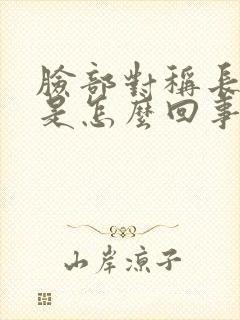 臉部對稱長
是怎麼回事
山岸涼子